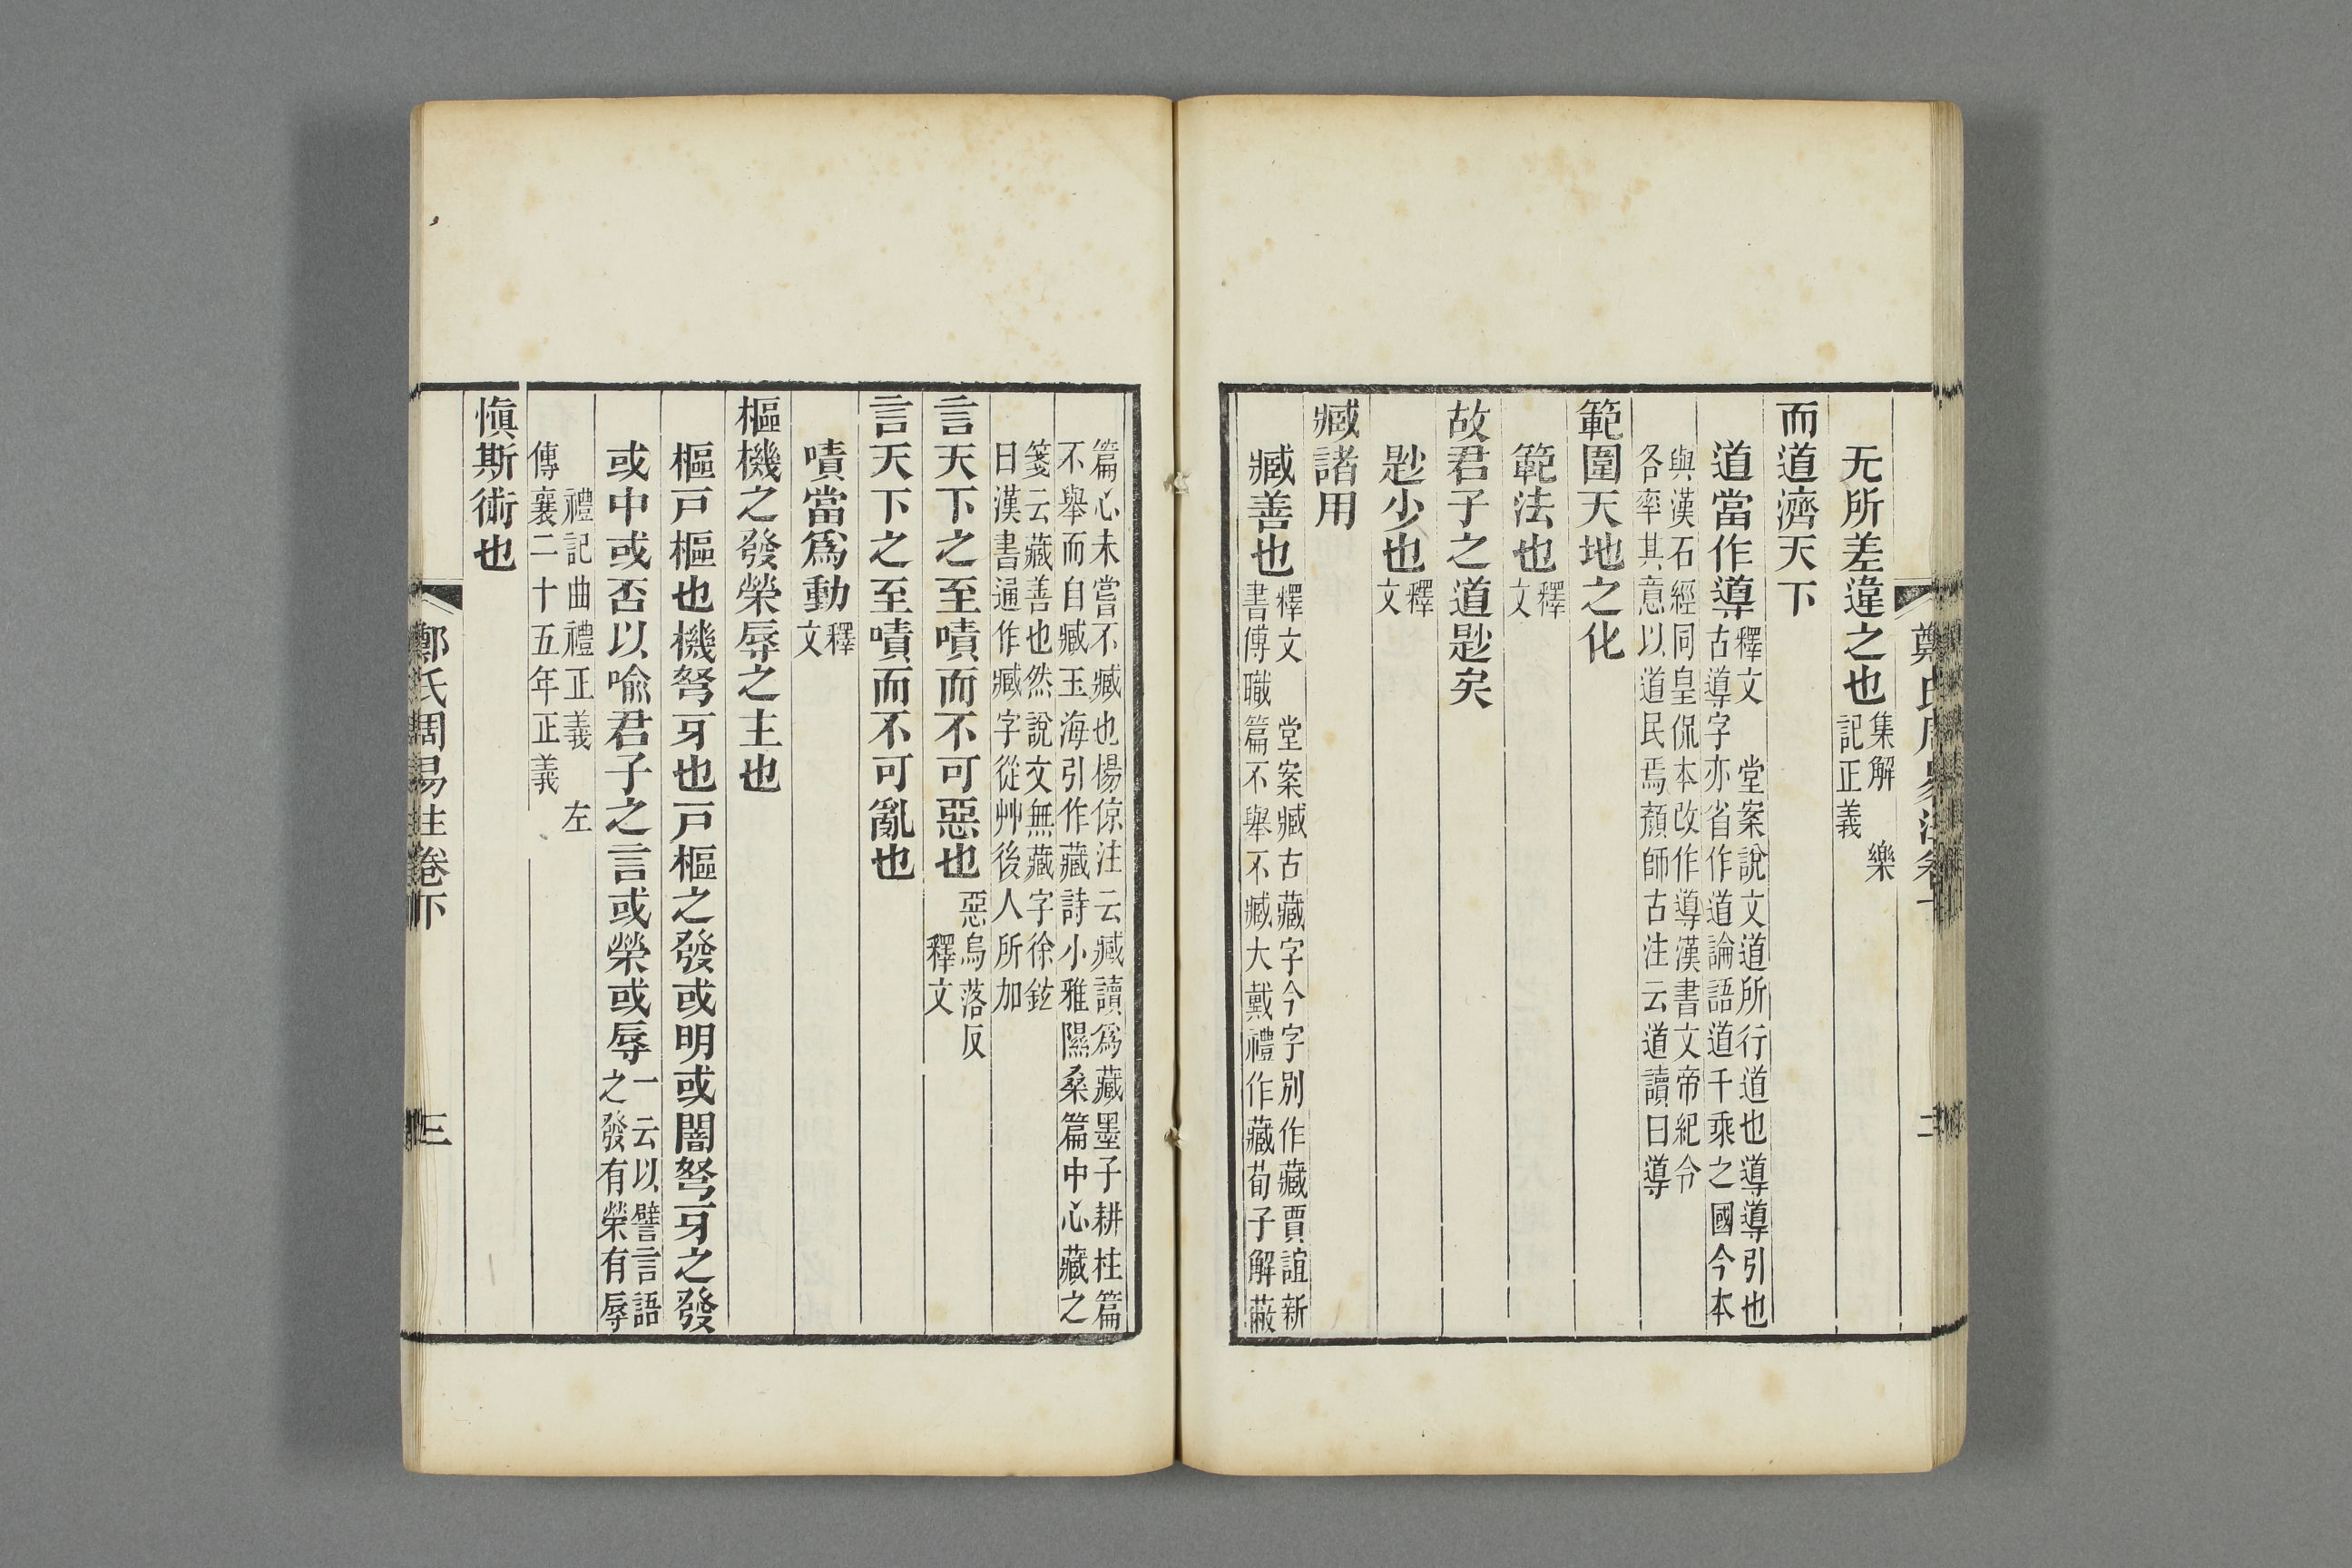 无所差違之也集解　樂
記正義
而道濟天下
道當作導釋文　堂案說文道所行道也導導引也
古導字亦省作道論語道千乘之國今本
與漢石經同皇侃本改作導漢書文帝紀令
各率其意以道民焉顏師古注云道讀曰導
範圍天地之化
範法也釋
文
故君子之道尟矣
尟少也釋
文
臧諸用
臧善也釋文　堂案臧古藏字今字別作藏賈誼新
書傅職篇不舉不臧大戴禮作藏荀子解蔽
鄭氏周易注卷下
二
篇心未嘗不臧也楊倞注云臧讀爲藏墨子耕柱篇
不舉而自臧玉海引作藏詩小雅隰桑篇中心藏之
箋云藏善也然說文無藏字徐鉉
曰漢書通作臧字從艸後人所加
言天下之至嘖而不可惡也惡烏落反
釋文
言天下之至嘖而不可亂也
嘖當爲動釋
文
樞機之發榮辱之主也
樞戸樞也機弩牙也戸樞之發或明或闇弩牙之發
或中或否以喻君子之言或榮或辱一云以譬言語
之發有榮有辱
禮記曲禮正義　左
傳襄二十五年正義
愼斯術也
鄭氏周易注卷下
三